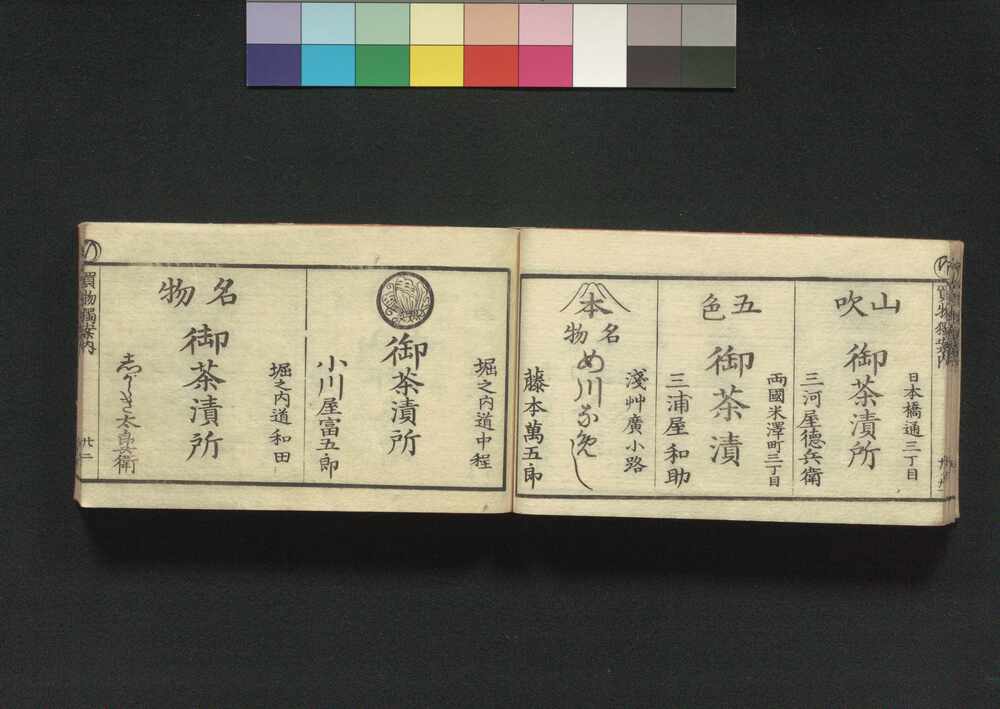 買物獨案内
日本橋通三丁目
山吹
御茶漬所
三河屋德兵衛
両國米澤町三丁目
五色
御茶漬
三浦屋和助
淺艸廣小路
本
名物
め川なめし
藤本萬五郎
堀之内道中程
御茶漬所
小川屋富五郎
堀之内道和田
名物
御茶漬所
太郎兵衛
買物獨案内
廿二